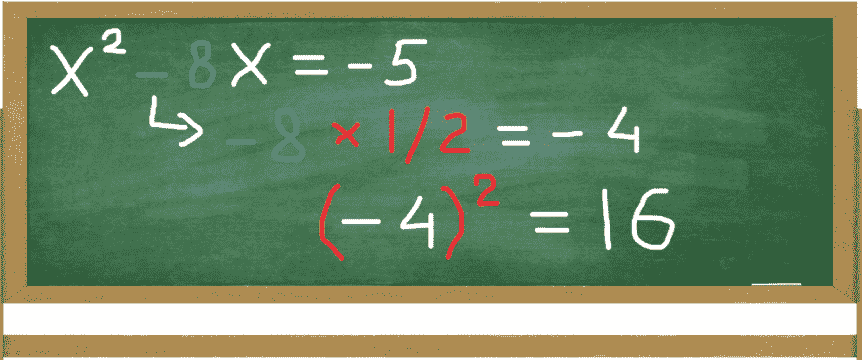 x² - 8x = -5
-8 × 1/2 = -4
(-4)² = 16